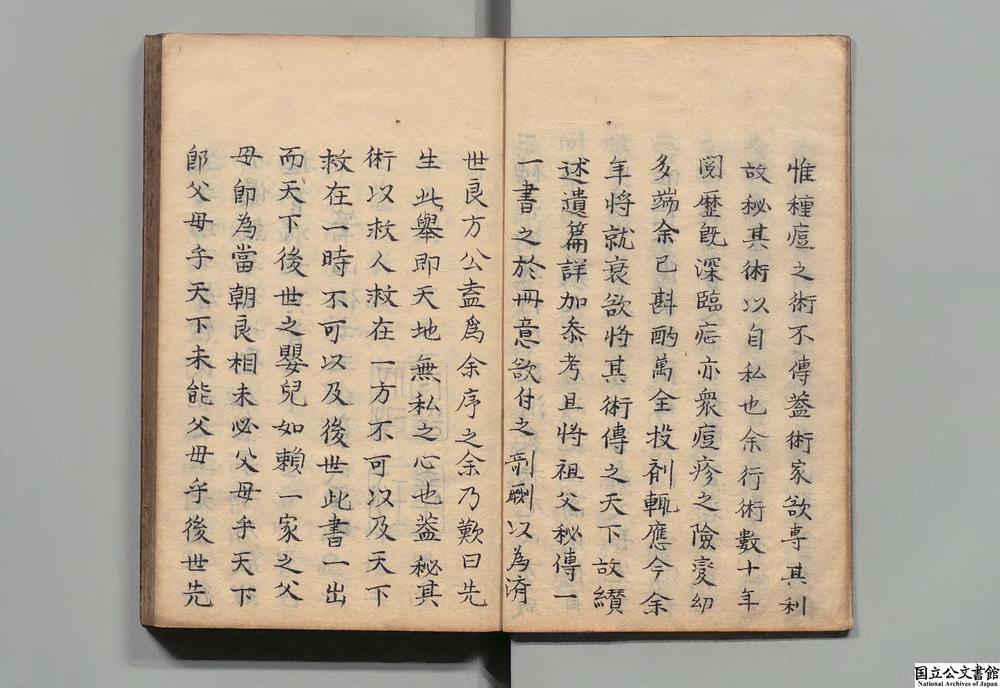 惟種痘之術不傳葢術家欲専其利
故秘其術以自私也余行術數十年
閲歷既深臨症亦衆痘疹之險變幻
多端余已斟酌萬全投剤輒應今余
年將就衰欲將其術傳之天下故纉
述遺篇詳加叅考且將祖父秘傳一
一書之於冊意欲付之剞劂以為濟
世良方公盍爲余序之余乃歎曰先
生此舉即天地無私之心也葢秘其
術以救人救在一方不可以及天下
救在一時不可以及後世此書一出
而天下後世之嬰兒如賴一家之父
母即為當朝良相未必父母乎天下
即父母乎天下未能父母乎後世先
国立公文書館
National Archives of Japan